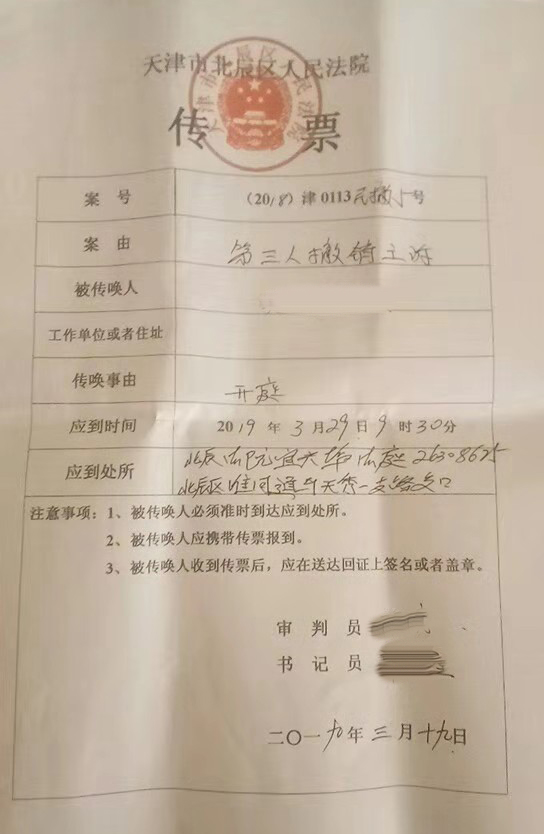 天津市北辰区人民法院
传票
案号 (2018)津0113民撤5号
案由 第三人撤销之诉
被传唤人
工作单位或者住址
传唤事由 开庭
应到时间 2019年3月29日9时30分
应到处所 北辰法院宜兴埠法庭26308675
北辰区淮河道与天秀一支路交口
注意事项：1、被传唤人必须准时到达应到处所。
2、被传唤人应携带传票报到。
3、被传唤人收到传票后，应在送达回证上签名或者盖章。
审判员
书记员
二〇一九年三月十九日